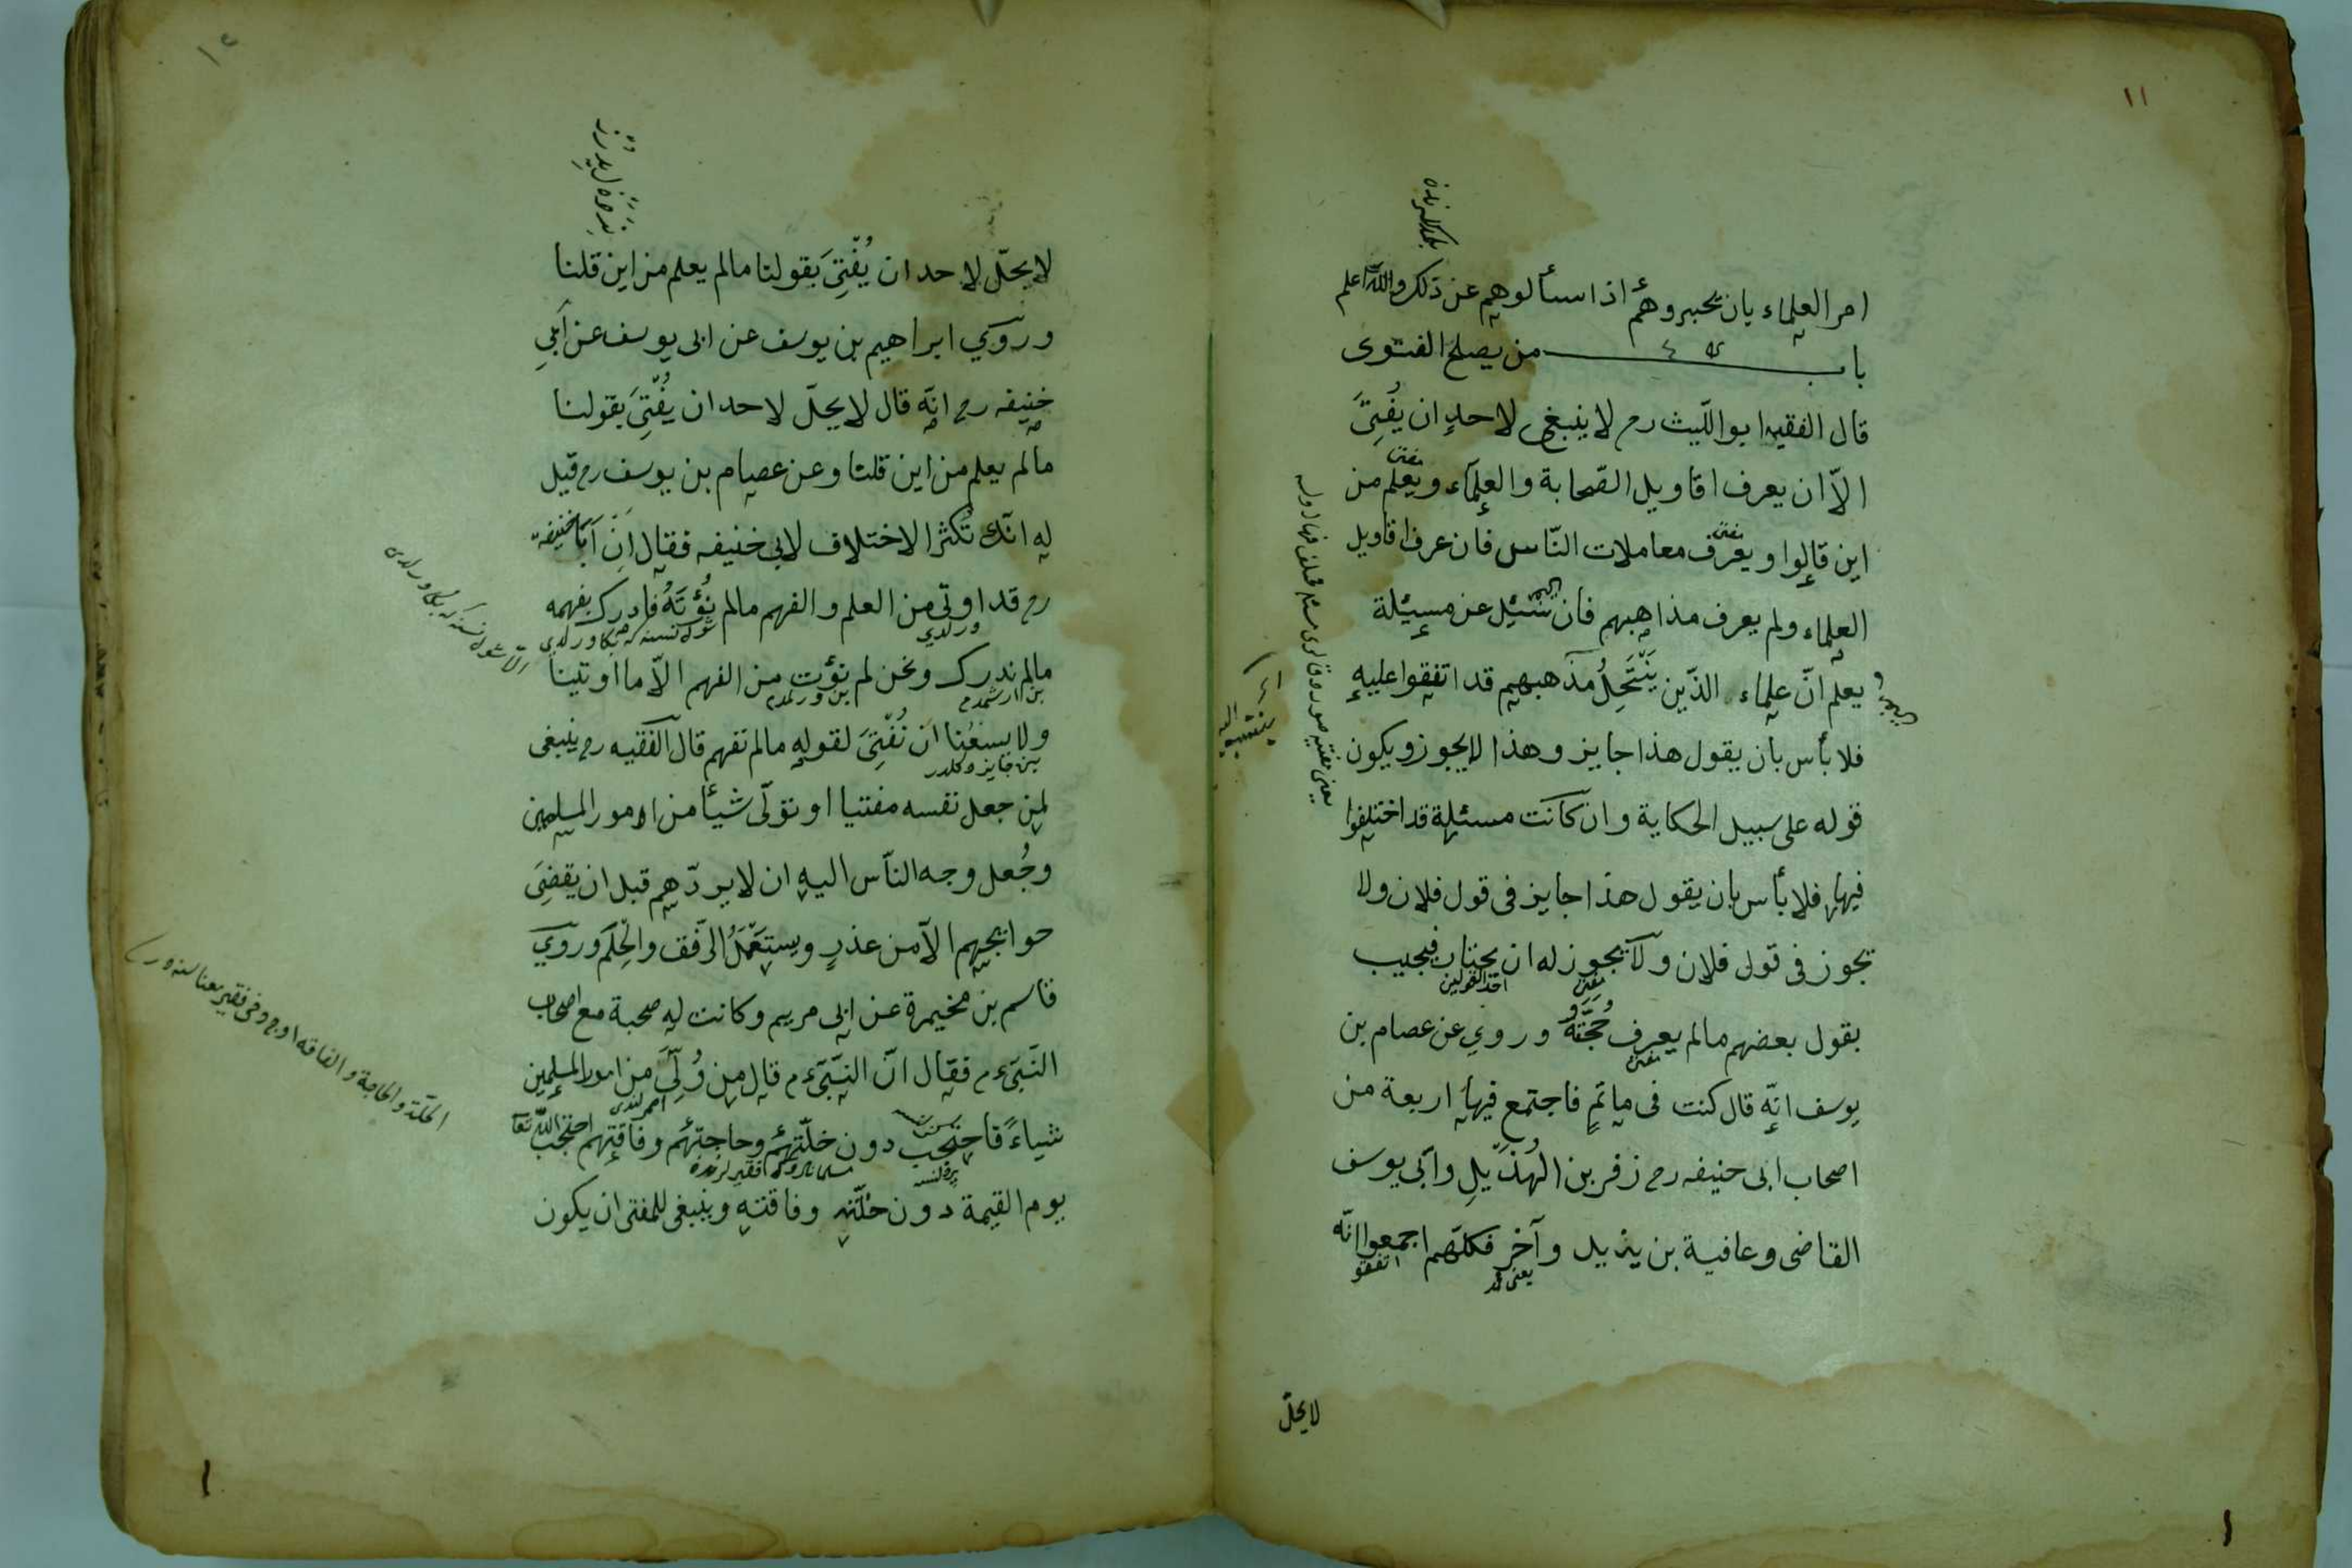 ١١
امر العلماء بان يخبروهم اذا سألوهم عن ذلك والله اعلم
باب من يصلح الفتوى
قال الفقيه ابو اللّيث رح لا ينبغى لاحدٍ ان يُفْتِىَ
الاّ ان يعرف اقاويل الصّحابة والعلمآء ويعلم من
اين قالوا ويعرف معاملات النّاس فان عرف اقاويل
العلماء ولم يعرف مذاهبهم فان سُئيل عن مسئلة
يعلم انّ علماء الذّين يَنْتَحِلُ مذاهبهم قد اتفقوا عليه
فلا بأس بان يقول هذا جايز وهذا لايجوز ويكون
قوله على سبيل الحكاية وان كانت مسئلة قد اختلفوا
فيها فلا بأس بان يقول هذا جايز فى قول فلان ولا
يجوز فى قول فلان ولا يجوز له ان يختار فيجيب
احد القولين
بقول بعضهم مالم يعرف حُجَّتَهُ وروى عن عصام بن
يوسف انّه قال كنت فى ماتمٍ فاجتمع فيها اربعة من
اصحاب ابى حنيفه رح زفر بن الهُذَيلِ وابى يوسف
القاضى وعافية بن يذيل وآخر فكلّهم اجمعوا انّه
اتفقو
لايحلّ
لا يحلّ لاحد ان يُفْتِىَ بقولنا مالم يعلم من اين قلنا
وروي ابراهيم بن يوسف عن ابى يوسف عن ابى
حنيفه رح انّه قال لا يحلّ لاحد ان يُفْتِىَ بقولنا
مالم يعلم من اين قلنا وعن عصام بن يوسف رح قيل
له انّك تُكثر الاختلاف لابى حنيفه فقال انّ اَبَا حنيفه
رح قد اوتى من العلم والفهم مالم نُؤْتَهُ فادرك بفهمه
ورلدي
مالم ندرك ونحن لم نؤت من الفهم الاّ ما اوتينا
ولا يسعُنا ان نُفْتِىَ لقوله مالم نفهم قال الفقيه رح ينبغى
لمن جعل نفسه مفتيا او تولّى شيأ من امور المسلمين
وجُعل وجه النّاس اليه ان لا يردّهم قبل ان يقضِىَ
حوايجهم الاّ من عذرٍ ويستعمل الرّفق والحِلم وروي
قاسم بن مخيمرة عن ابى مريم وكانت له صحبة مع اصحاب
النّبىّ ع م فقال انّ النبّىّ ع م قال من وُلِّىَ من امور المسلمين
شياءً فاحتجب دون خلّتهم وحاجتهم وفاقتهم احتجب اللّه تعا
يوم القيمة دون خلّته وفاقته وينبغى للمفتى ان يكون